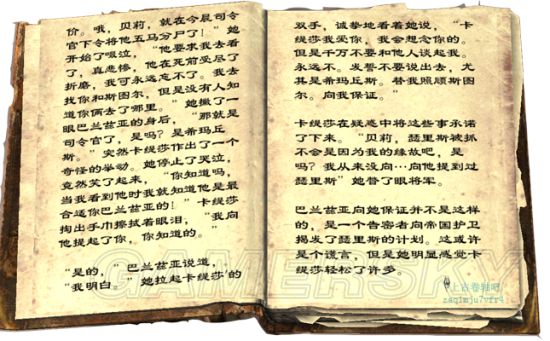 价。哦，贝莉，就在今晨司令
官下令将他五马分尸了！”她
开始了啜泣，“他要求我去看
了，真悲惨，他在死前受尽了
折磨，我可永远忘不了。我去
找你和斯图尔，但是没有人知
道你俩去了哪里。”她撇了一
眼巴兰兹亚的身后，“那就是
司令官了，是吗？是希玛丘
斯。”突然卡缇莎作出了一个
奇怪的举动。她停止了哭泣，
竟然笑了起来，“你知道吗，
当我看到他时我就知道他是最
合适你巴兰兹亚的！”卡缇莎
掏出手巾擦拭着眼泪，“我向
他提起了你，你知道的。”
“是的，”巴兰兹亚说道，
“我明白。”她拉起卡缇莎的
双手，诚挚地看着她说，“卡
缇莎我爱你，我会想念你的。
但是千万不要和他人谈起我。
永远不。发誓不要说出去，尤
其是希玛丘斯。替我照顾斯图
尔。向我保证。”
卡缇莎在疑惑中将这些事承诺
了下来。“贝莉，瑟里斯被抓
不会是因为我的缘故吧，是
吗？我从来没向…向他提到过
瑟里斯”她瞥了眼将军。
巴兰兹亚向她保证并不是这样
的，是一个告密者向帝国护卫
揭发了瑟里斯的计划。这或许
是个谎言，但是她明显感觉卡
缇莎轻松了许多。
GAMERSKY
上古卷轴吧
zaqimju7vfr4